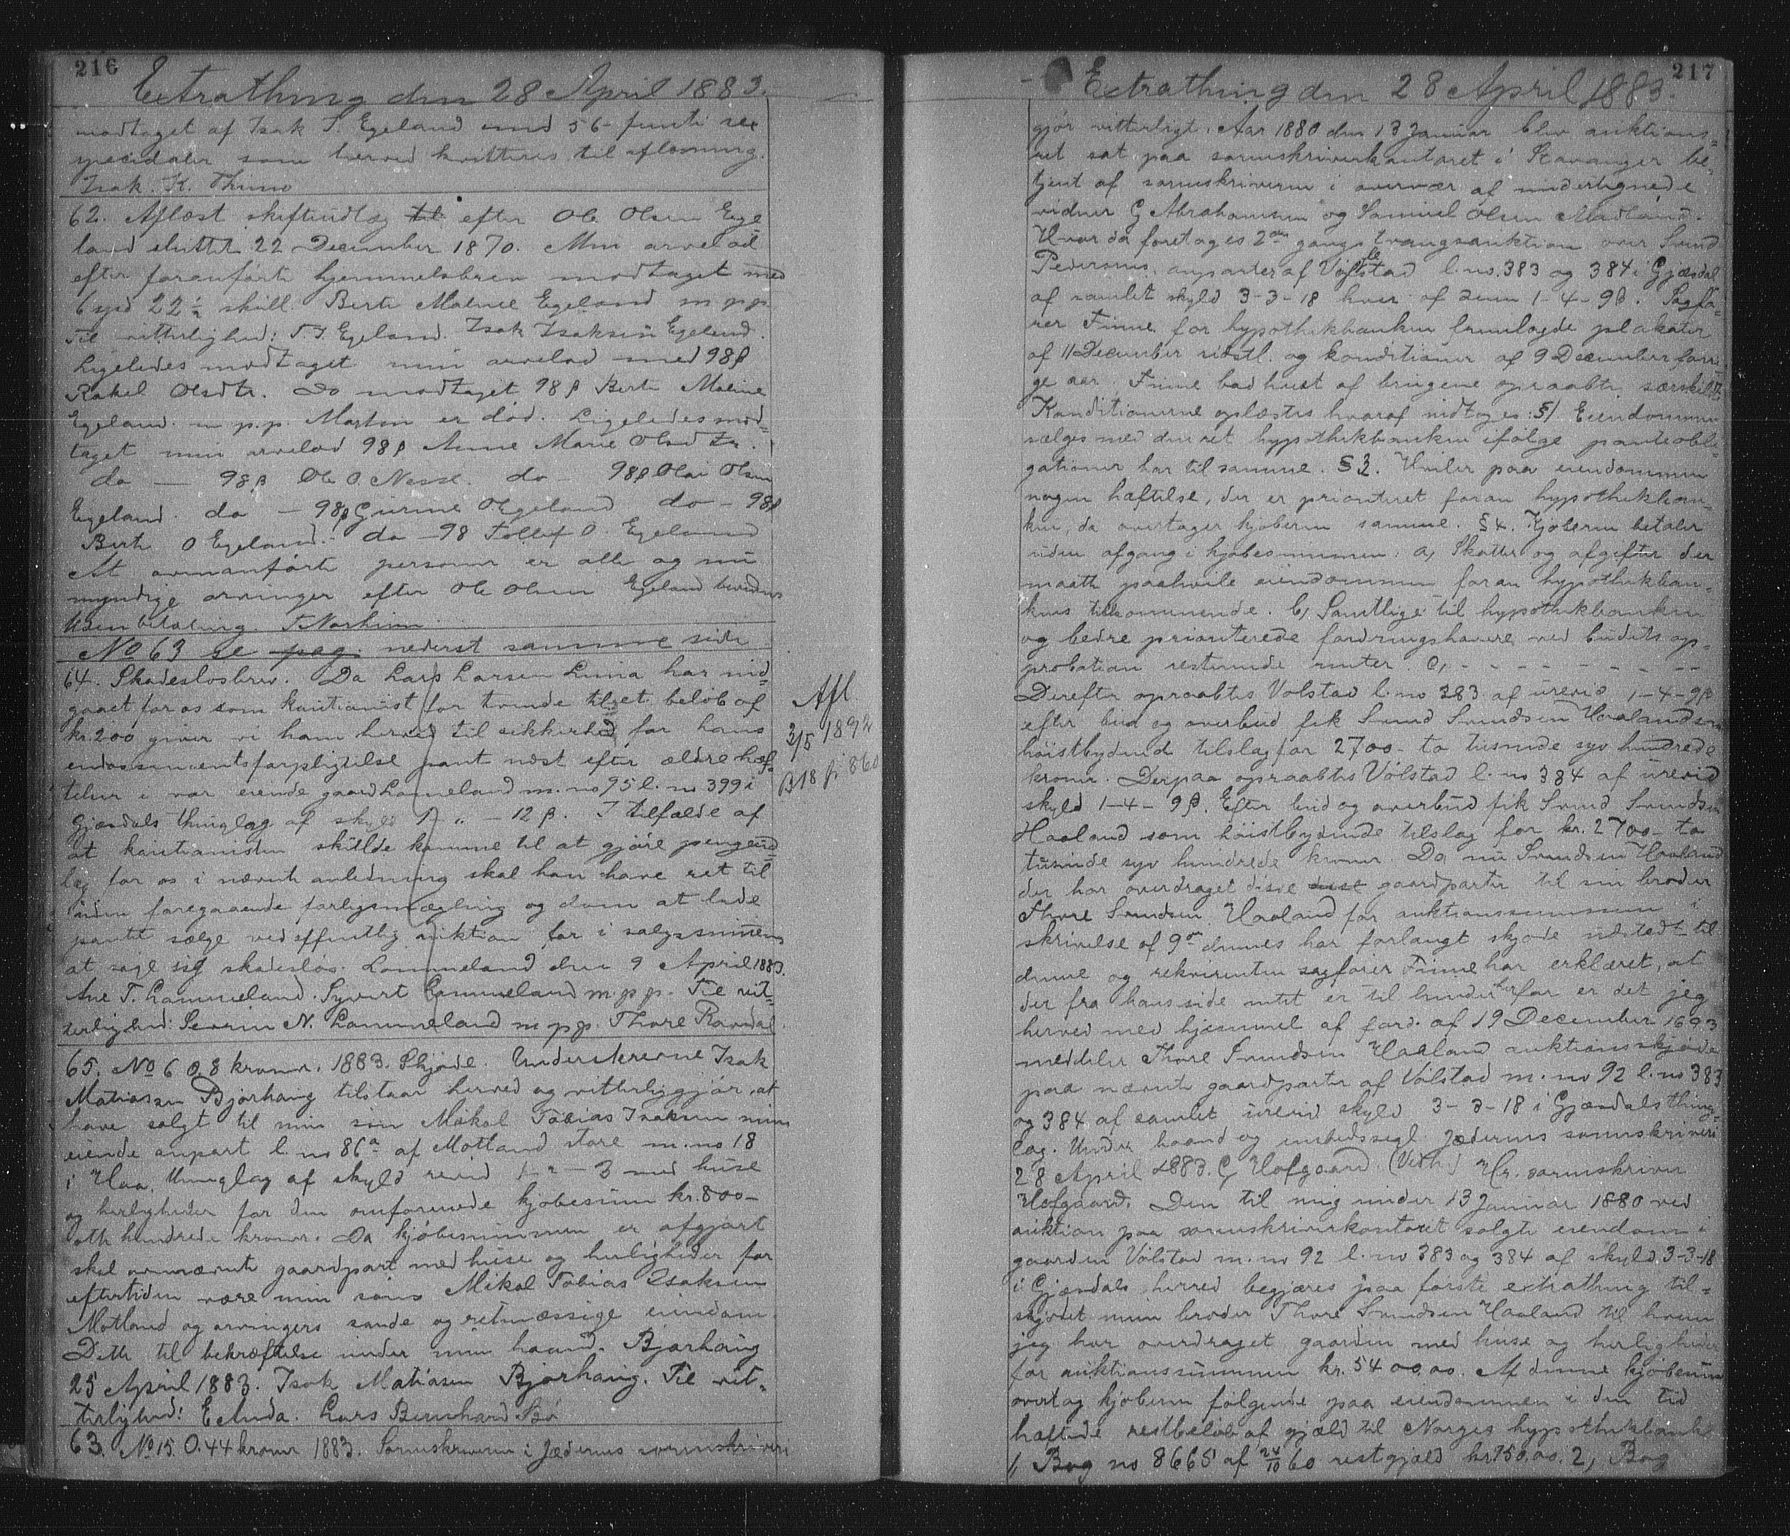 216
Extrathing den 28 April 1883.
modtaget af Isak T. Egeland med 56 femti sex
speciedaler som herved kvitteres til aflæsning.
Isak K. Thime
62. Aflæst skifteudlæg til efter Ole Olsen Ege
land sluttet 22 December 1870. Min arvelod
efter foranførte hjemmelsbrev modtaget med
6 spd 22 1/2 skill. Berte Malene Egeland m p.p.
Til vitterlighed: T. T. Egeland. Isak Isaksen Egeland.
Ligeledes modtaget min arvelod med 98 β
Rakel Olsdtr. Do modtaget 98 β Berte Maline
Egeland m p.p. Marten er død. Ligeledes mod=
taget min arvelod 98 β Anne Marie Olsdtr.
do — 98 β Ole O. Nesse. do — 98 β Olai Olsen
Egeland. do — 98 β Gurine O Egeland do — 98 β
Berte O Egeland. do — 98 Tollef O. Egeland
At ovenanførte personer er alle og nu
myndige arvinger efter Ole Olsen Egeland bevidnes
Uden betaling. T Norheim
No 63 se pag. nederst samme side
64. Skadesløsbrev. Da Lars Larsen Lima har ind
gaaet for os som kautionist for tvende til et beløb af
kr. 200 giver vi ham herved til sikkerhed for hans
endossementsforpligtelse pant næst efter ældre hæf
telser i vor eiende gaard Lommeland m. no 95 l. no 399 i
Gjæsdals thinglag af skyld " " — 12 β. I tilfælde af
at kautionisten skulde komme til at gjøre pengeud
læg for os i nævnte anledning skal han have ret til
uden foregaaende forligsmægling og dom at lade
pantet sælge ved offentlig auktion for i salgssummen
at søge sig skadesløs. Lommeland den 9 April 1883.
Ane T. Lommeland. Syvert Lommeland m.p.p. Til vit=
terlighed: Severin N. Lommeland m p.p. Thore Ravndal
Afl.
3/5 1892
B 18 fi 860
65. No 6 0,8 kroner. 1883. Skjøde. Underskrevne Isak
Matiassen Bjorhaug tilstaar herved og vitterliggjør at
have solgt til min søn Mikal Tobias Isaksen min
eiende anpart l. no 86 a af Motland store m. no 18
i Haa thinglag af skyld revid " — 3 med huse
og herligheder for den omforenede kjøbesum kr. 800 —
otte hundrede kroner. Da kjøbesummen er afgjort
skal ovennævnte gaardpart med huse og herligheder for
eftertiden være min søns Mikal Tobias Isaksen
Motland og arvingers sande og retmæssige eiendom.
Dette til bekræftelse under min haand. Bjorhaug
25 April 1883. Isak Matiasen Bjorhaug. Til vit=
terlighed: E Auda. Lars Bernhard Bø
63. No 15. 0.44 kroner 1883. Sorenskriveren i Jæderens sorenskriveri
217
Extrathing den 28 April 1883.
gjør vitterligt. Aar 1880 den 13 Januar blev auktions=
ret sat paa sorenskriverkontoret i Stavanger be=
tjent af sorenskriveren i overvær af undertegnede
vidner G Abrahamsen og Samuel Olsen Madland.
Hvor da foretoges 2den gangs tvangsauktion over Svend
Pedersens anparter af Vølstad l. no. 383 og 384 i Gjæsdal
af samlet skyld 3-3-18 hver af dem 1-4-9 β. Sagfø=
rer Finne for hypothekbanken fremlagde plakater
af 11 December sidstl. og konditioner af 9 December forri
ge aar. Finne bad hvert af brugene opraabte særskilt.
Konditionerne oplæstes hvoraf indtoges: §1 Eiendommen
sælges med den ret hypothekbanken ifølge panteobli
gationer har til samme. § 3. Hviler paa eiendommen
nogen hæftelse, der er prioriteret foran hypothekban=
ken, da overtager kjøberen samme. § 4. Kjøberen betaler
uden afgang i kjøbesummen: a, Skatter og afgifter der
maatte paahvile eiendommen foran hypothekban=
kens tilkommende. b, Samtlige til hypothekbanken
og bedre prioriterede fordringshavere ved budets ap=
probation resterende renter c, - - - - - - - -
Derefter opraabtes Vølstad l. no 383 af urevid. 1-4-9 β
efter bud og overbud fik Svend Svendsen Haaland som
høistbydende tilslag for 2700 - to tusinde syv hundrede
kroner. Derpaa opraabtes Vølstad l. no 384 af urevid
skyld 1-4-9 β. Efter bud og overbud fik Svend Svendsen
Haaland som høistbydende tilslag for kr. 2700 - to
tusinde syv hundrede kroner. Da nu Svendsen Haaland
der har overdraget disse gaardparter til sin broder
Thore Svendsen Haaland for auktionssummen i
skrivelse af 9de dennes har forlangt skjøde udstedt til
denne og rekvirenten sagfører Finne har erklæret, at
der fra hans side intet er til hinder herfor er det jeg
herved med hjemmel af ford. af 19 December 1693
meddeler Thore Svendsen Haaland auktionsskjøde
paa nævnte gaardparter af Vølstad m. no 92 l. no 383
og 384 af samlet urevid skyld 3-3-18 i Gjæsdals thing=
lag. Under haand og embedssegl Jæderens sorenskriveri
28 April 1883. G Hofgaard (Vidt.) Hr. sorenskriver
Hofgaard. Den til mig under 13 Januar 1880 ved
auktion paa sorenskriverkontoret solgte eiendom i
gaarden Vølstad m. no 92 l. no 383 og 384 af skyld 3-3-18
i Gjæsdals herred begjæres paa første extrathing til=
skjødet min broder Thore Svendsen Haaland til hvem
jeg har overdraget gaarden med huse og herligheder
for auktionssummen kr. 5400,00. Af denne kjøbesum
overtog kjøberen følgende paa eiendommen i den tid
hæftede restbeløb af gjæld til Norges hypothekbank
1, Bog no 8665 af 24/10 60 restgjæld kr 750,00. 2, Bog